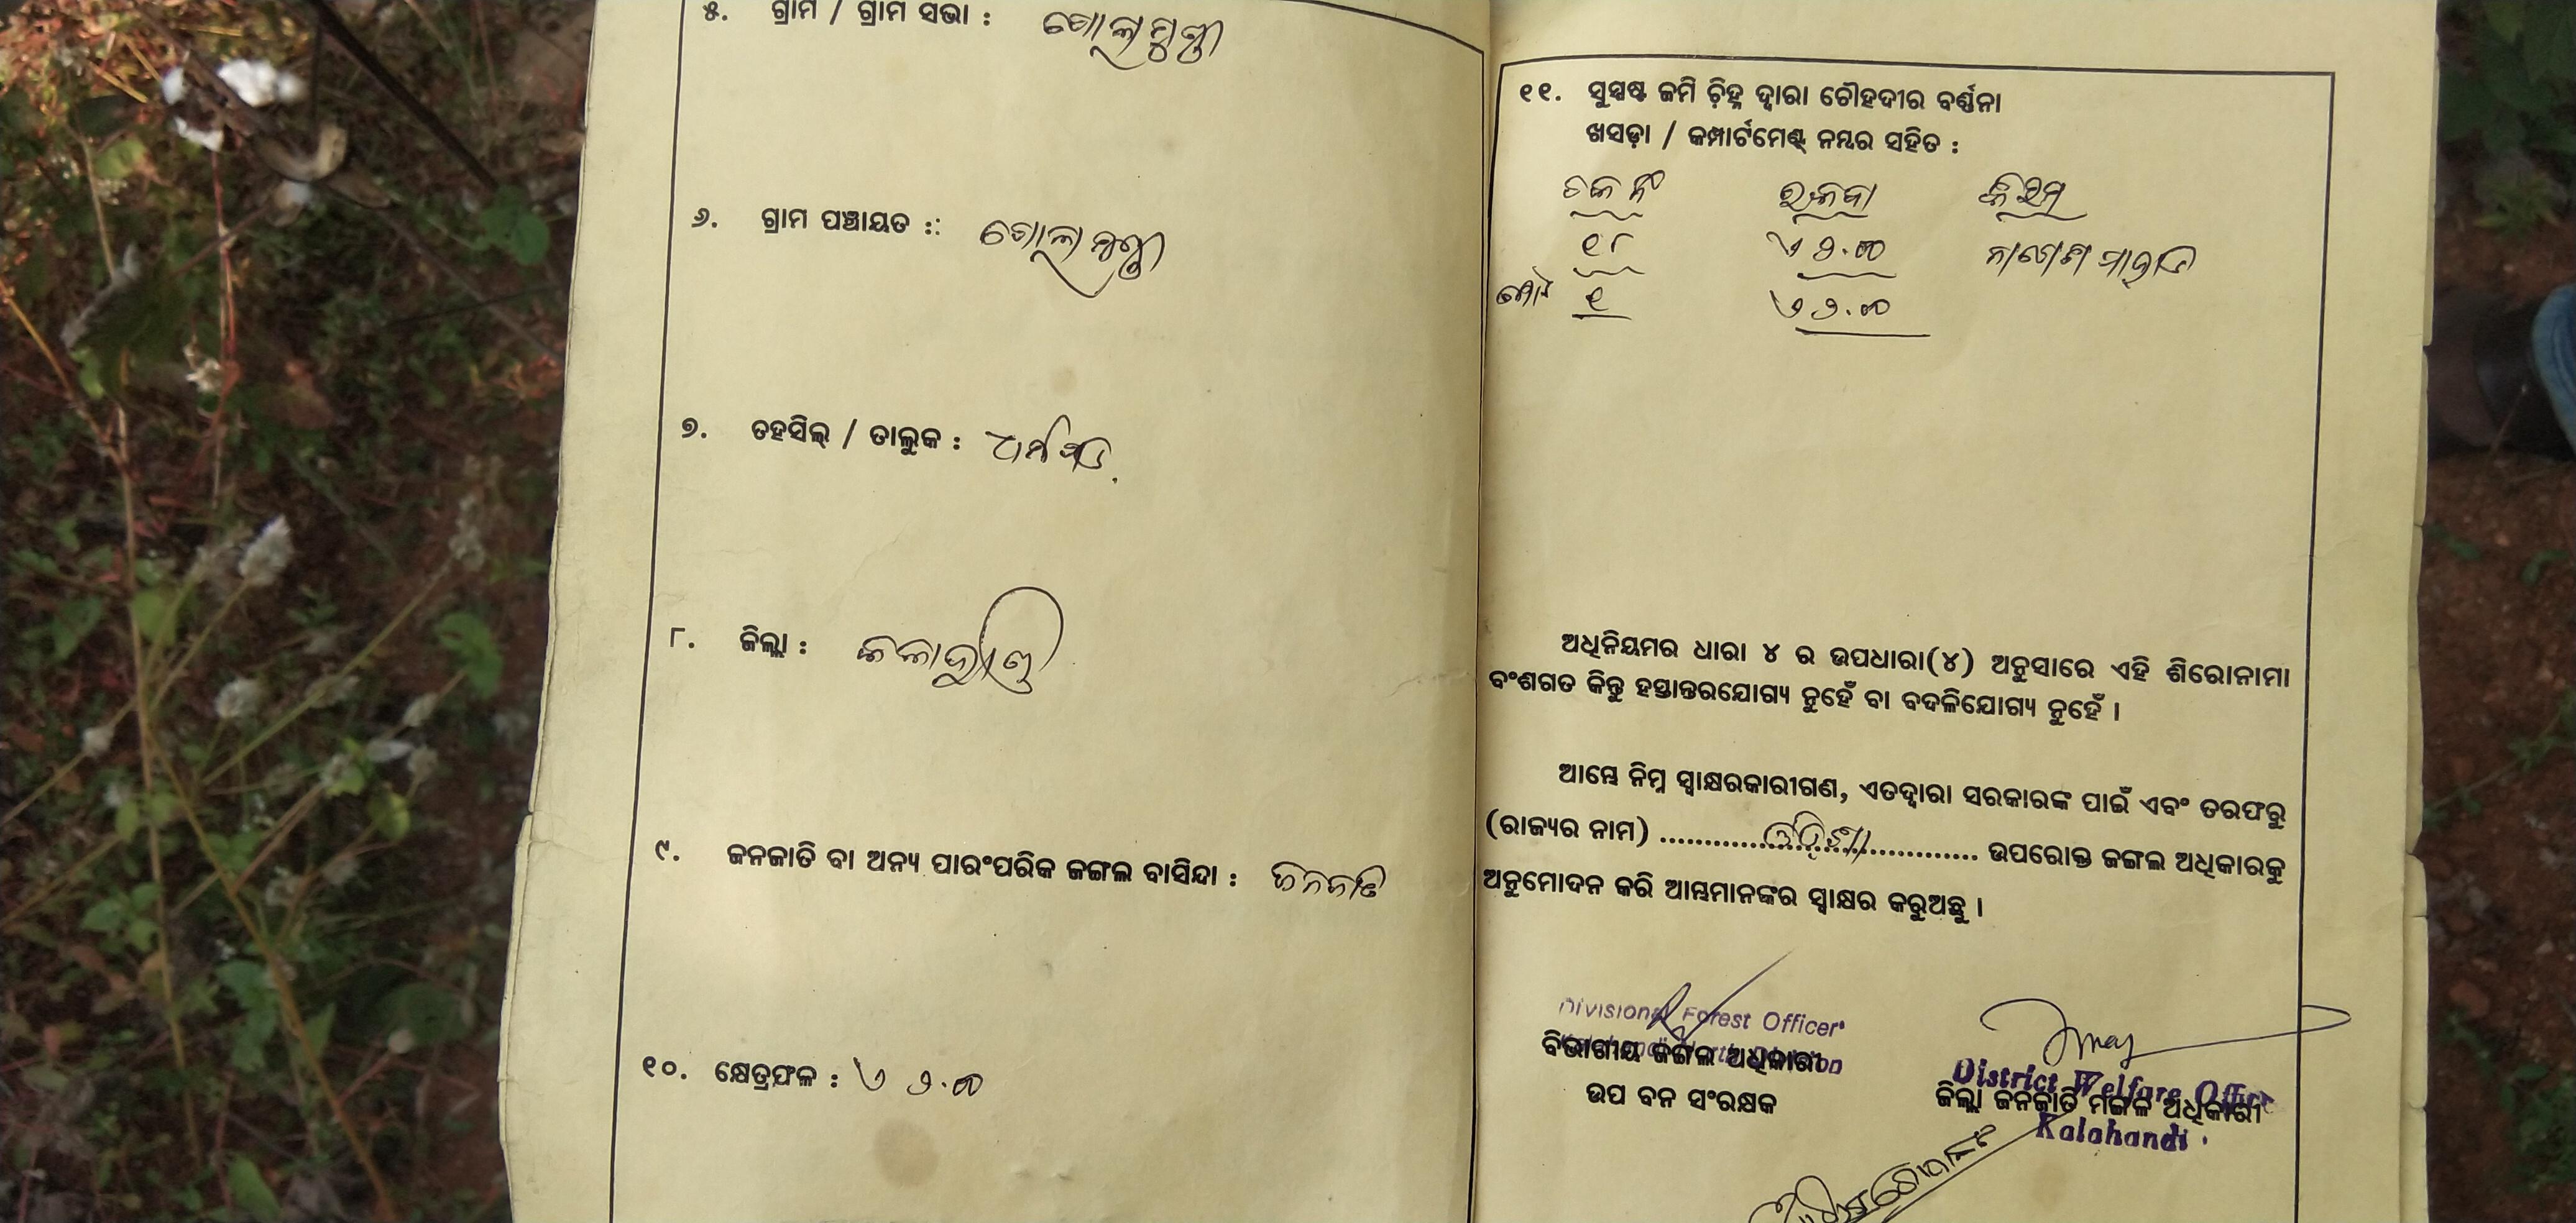 ୫. ଗ୍ରାମ / ଗ୍ରାମ ସଭା : ଗୋଲମୁଣ୍ଡା
୬. ଗ୍ରାମ ପଞ୍ଚାୟତ :: ଗୋଲମୁଣ୍ଡା
୭. ତହସିଲ୍ / ତାଲୁକ : ଧର୍ମଗଡ.
୮. ଜିଲ୍ଲା : କଳାହାଣ୍ଡି
୯. ଜନଜାତି ବା ଅନ୍ୟ ପାରଂପରିକ ଜଙ୍ଗଲ ବାସିନ୍ଦା : ଜନଜାତି
୧୦. କ୍ଷେତ୍ରଫଳ : ଏ ୨.୦୦
୧୧. ସୁସ୍ପଷ୍ଟ ଜମି ଚ଼ିହ୍ନ ଦ୍ୱାରା ଚୌହଦୀର ବର୍ଣ୍ଣନା
ଖସଡ଼ା / କମ୍ପାର୍ଟମେଣ୍ଟ୍ ନମ୍ବର ସହିତ :
ଚକ ନଂ ରକବା କିସମ
୧୮ ଏ ୨.୦୦
ମୋଟ ୧ ଏ ୨.୦୦
ଅଧିନିୟମର ଧାରା ୪ ର ଉପଧାରା(୪) ଅନୁସାରେ ଏହି ଶିରୋନାମା
ବଂଶଗତ କିନ୍ତୁ ହସ୍ତାନ୍ତରଯୋଗ୍ୟ ନୁହେଁ ବା ବଦଳିଯୋଗ୍ୟ ନୁହେଁ ।
ଆମ୍ଭେ ନିମ୍ନ ସ୍ୱାକ୍ଷରକାରୀଗଣ, ଏତଦ୍ୱାରା ସରକାରଙ୍କ ପାଇଁ ଏବଂ ତରଫରୁ
(ରାଜ୍ୟର ନାମ) ........ଓଡ଼ିଶା........ ଉପରୋକ୍ତ ଜଙ୍ଗଲ ଅଧିକାରକୁ
ଅନୁମୋଦନ କରି ଆମ୍ଭମାନଙ୍କର ସ୍ୱାକ୍ଷର କରୁଅଛୁ ।
Divisional Forest Officer
ବିଭାଗୀୟ ଜଙ୍ଗଲ ଅଧିକାରୀ
ଉପ ବନ ସଂରକ୍ଷକ
District Welfare Officer
ଜିଲ୍ଲା ଜନଜାତି ମଙ୍ଗଳ ଅଧିକାରୀ
Kalahandi